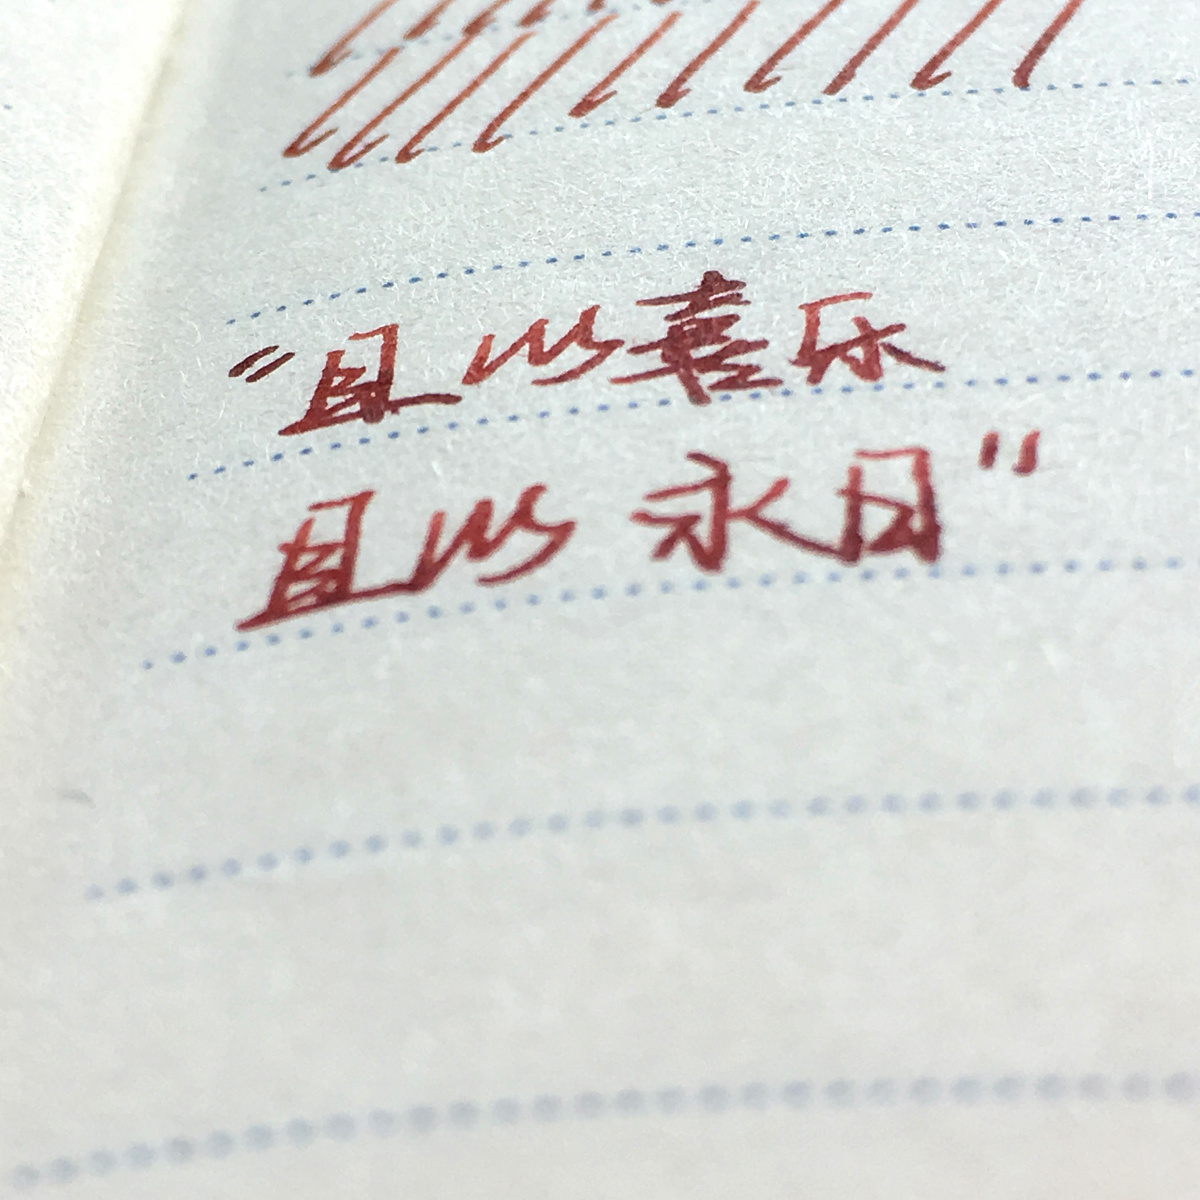 “且以喜乐
且以永日”